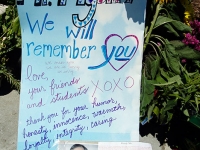 We will
remember you
love,
your friends
and students XOXO
thank you for your humor,
honesty, innocence, warmth,
loyalty, integrity, caring